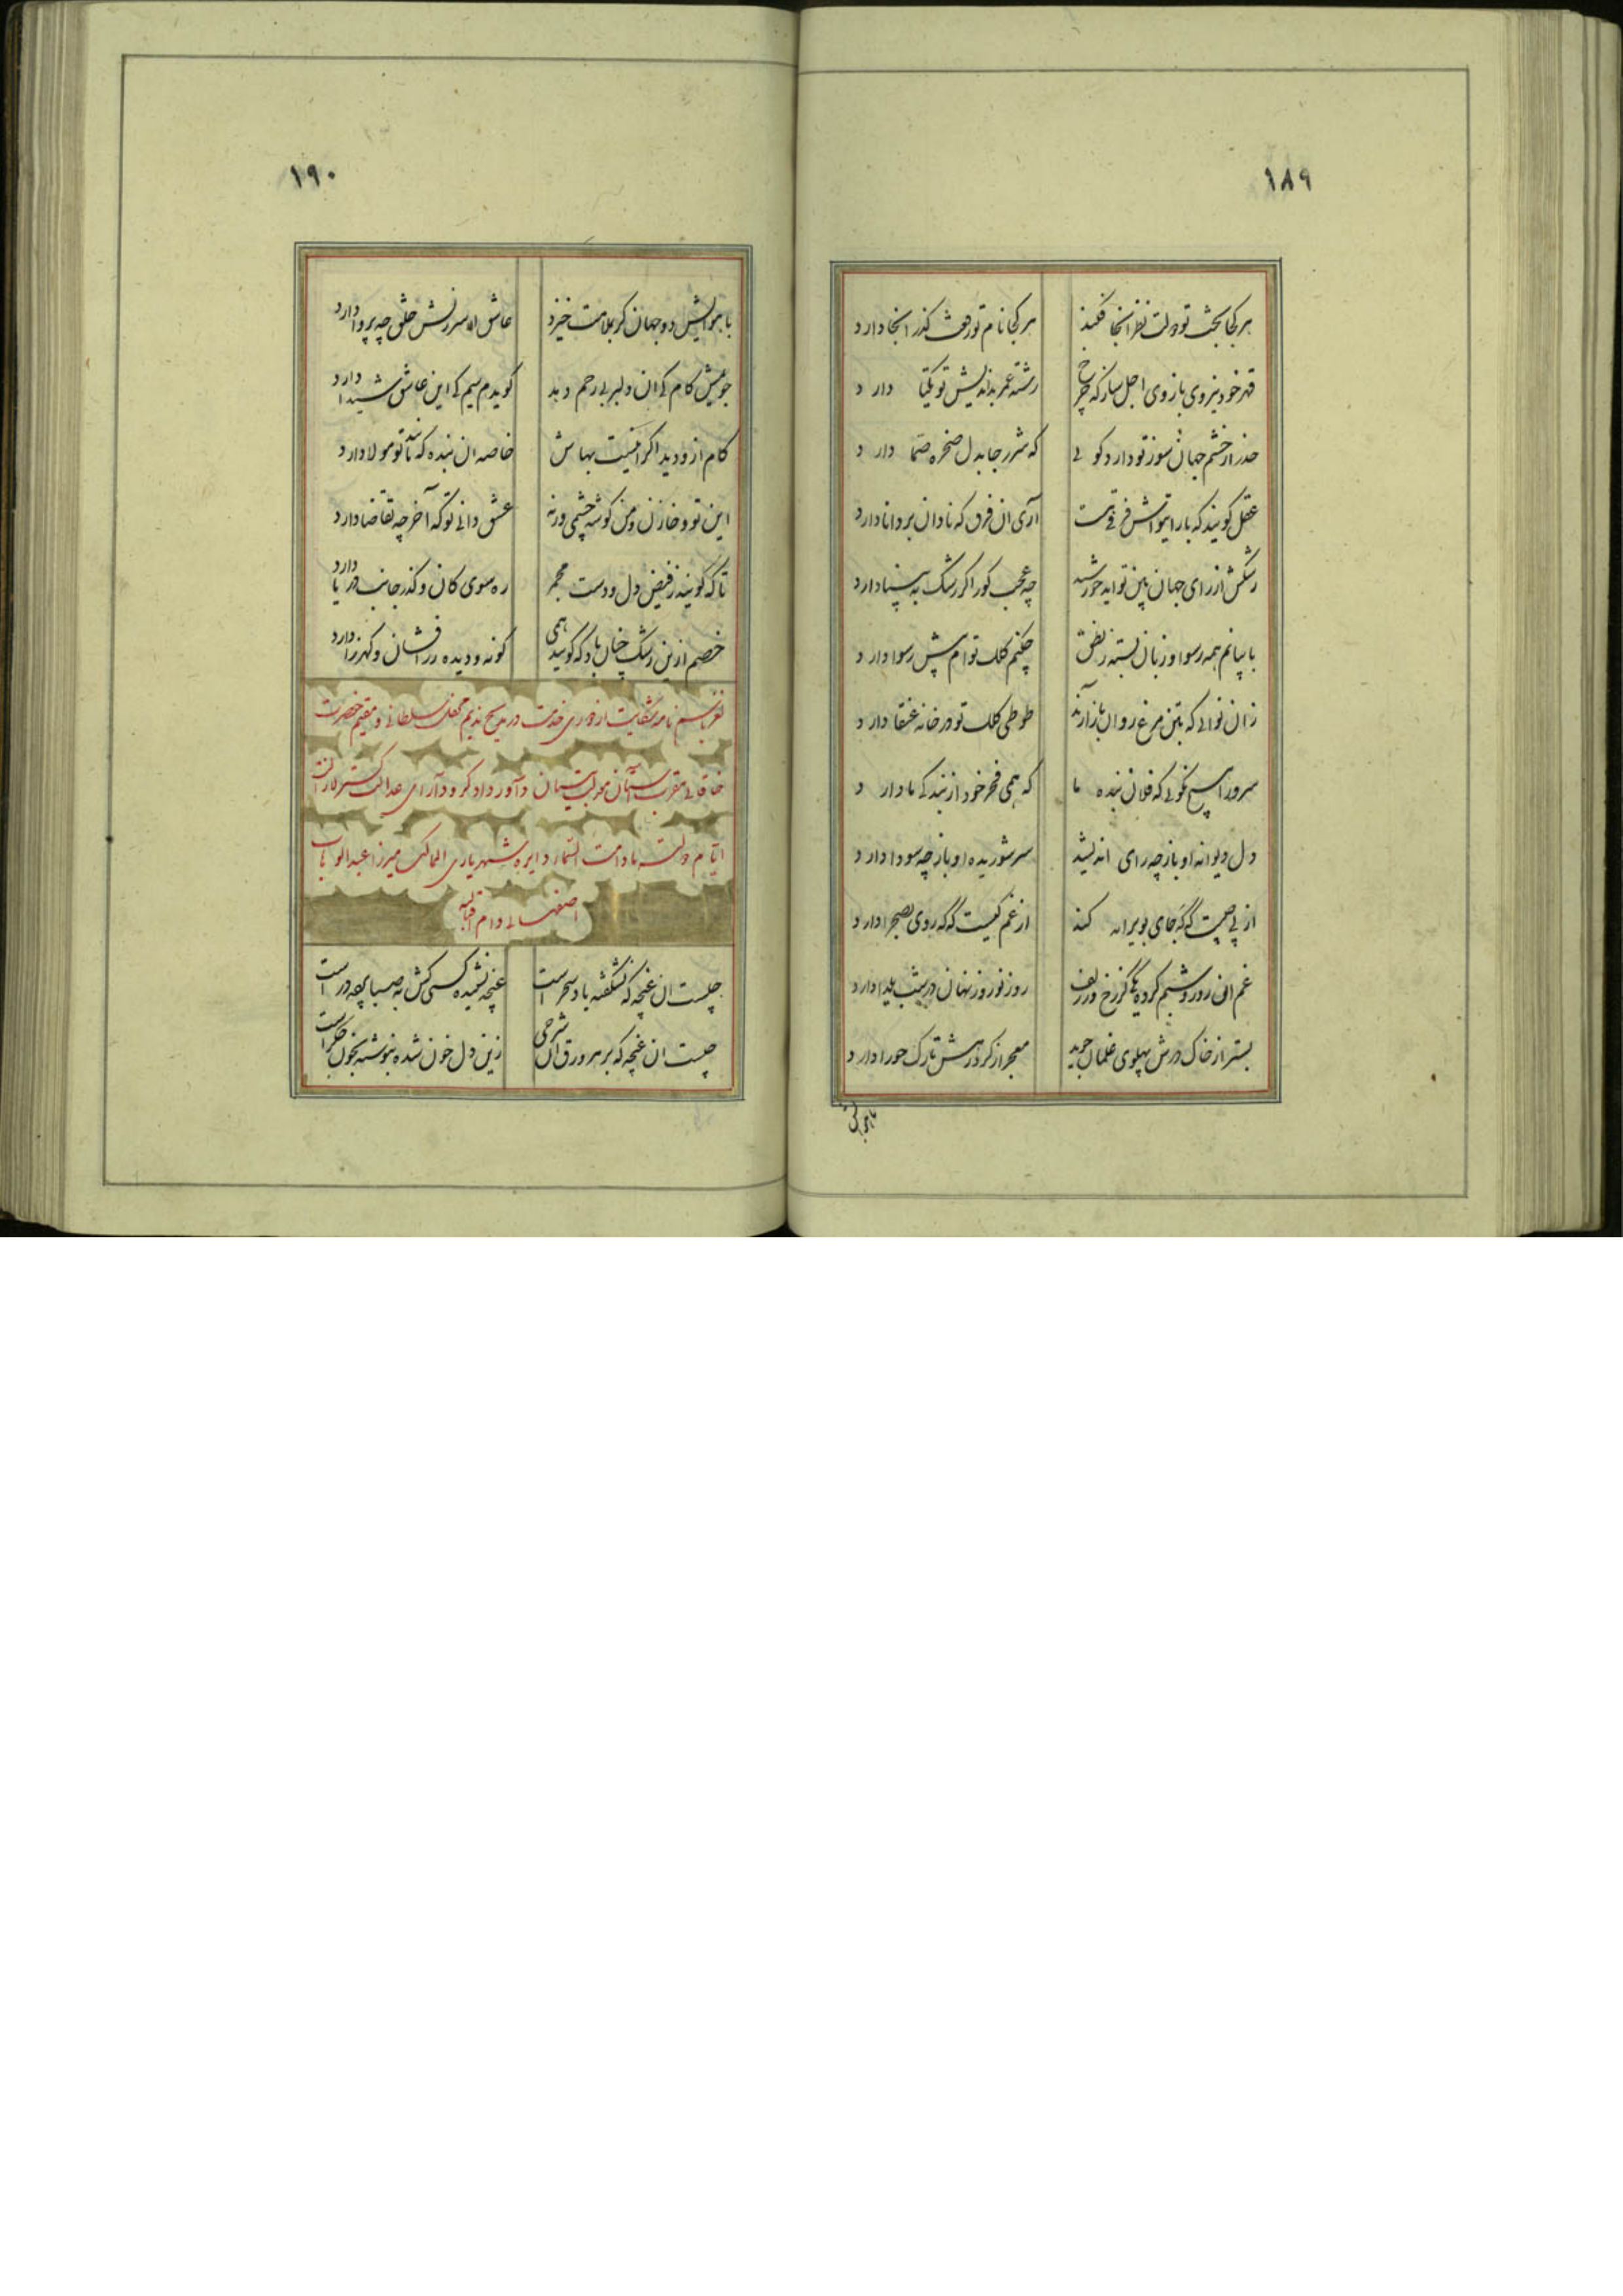 ١٨٩
هر کجا بخت تو دولت نظر آنجا فکند هر کجا نام تو رفعت گذر آنجا دارد
قهر خود نیروی بازوی اجل ساز که چرخ رشته عمر بداندیش تو یکتا دارد
حذر از خشم جهان سوز تو دارد گویی که شرر جا بدل صخره صما دارد
عقل گویند که با رای تواش فرقی هست آری آن فرق که نادان بر دانا دارد
رشکش از رای جهان بین تو آید خورشید چه عجب کور اگر رشک به بینا دارد
با بیانم همه رسوا و زبان بسته ز نطق چکنم کلک توام پیش رسوا دارد
زان نوائی که بتن مرغ روان باز آرند طوطی کلک تو در خانه عنقا دارد
سرورا هیچ نگوئی که فلان بنده ما که همی فخر خود از بندگی ما دارد
دل دیوانه او باز چه رای اندیشد سر شوریده او باز چه سودا دارد
از پی چیست گهی جای بویرانه کند از غم کیست که گه روی بصحرا دارد
غم آن روز و شبم کرده که از رخ و زلف روز نوروز نهان در شب یلدا دارد
بستر از خاک درش پهلوی غلمان جوید معجر از گرد رهش تارک حورا دارد
با هوایش
١٩٠
با هوایش دو جهان گر بملامت خیزد عاشق از سرزنش خلق چه پروا دارد
جویمش کام کی آن دلبر بی رحم دهد گویدم سیم کی این عاشق شیدا دارد
کام ازو دید اگر اینست بهاش خاصه آن بنده که مانند تو مولا دارد
این تو و خازن و من گوشه چشمی ورنه عشق دانی تو که آخر چه تقاضا دارد
تا که گویند ز فیض دل و دست مجمر ره سوی کان و گذر جانب دریا دارد
خصم از این رشک چنان باد که گویند همی گونه و دیده زرافشان و گهرزا دارد
در مدیح ندیم محفل سلطانی و مقیم حضرت
خاقانی مقرب آستان دولت داور دادگر و دارای عدالت گستر
ایام دولته مادامت السماء دایره شهریاری الممالک میرزا عبدالوهاب
اصفهانی دام اقباله
چیست آن غنچه که نشکفته باد سحر است غنچه نشنیده کسی کش نه صبا پرده در است
چیست آن غنچه که بر هر ورق آن شرحی زین دل خون شده بنوشته بخون جگر است